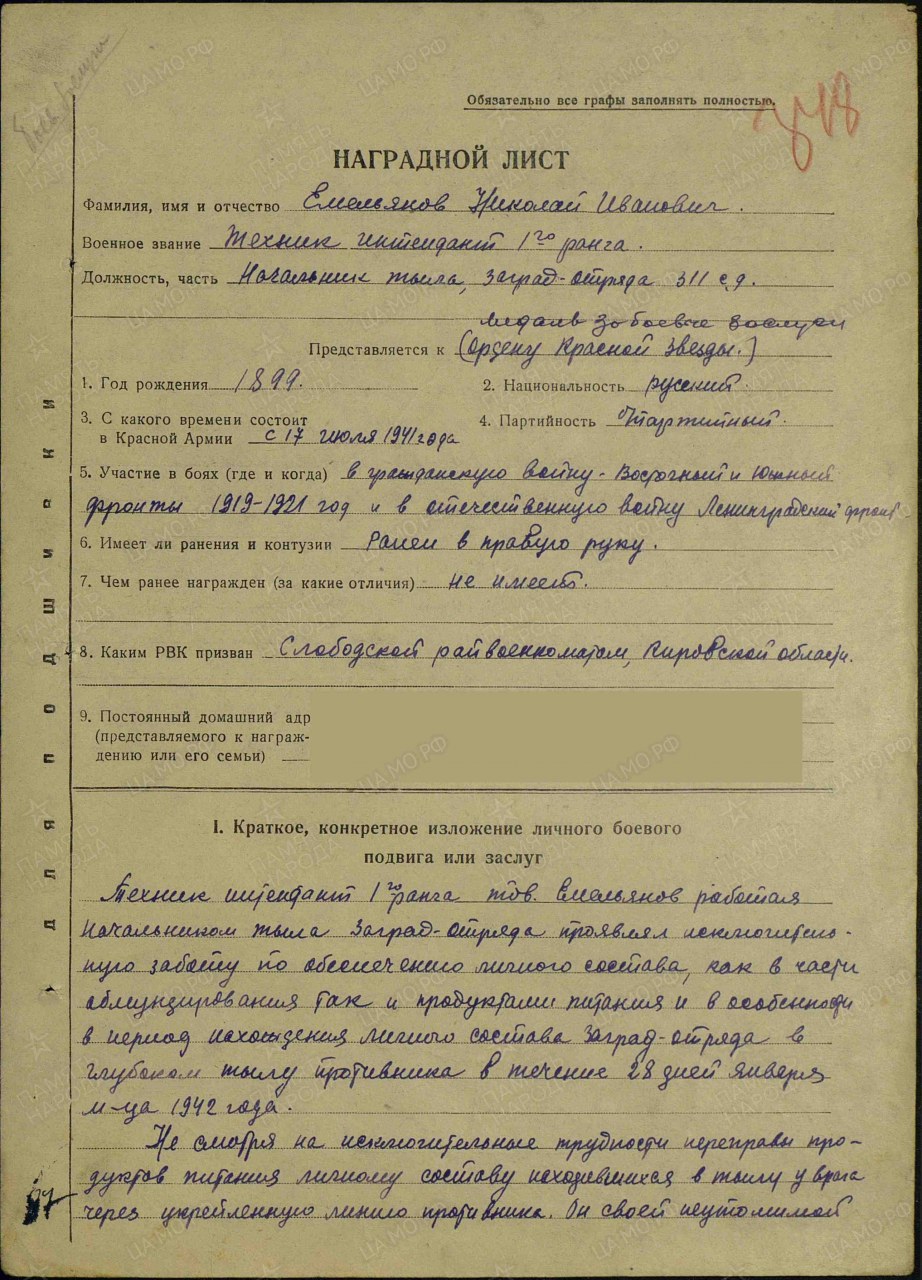 Обязательно все графы заполнять полностью.
НАГРАДНОЙ ЛИСТ
Фамилия, имя и отчество Емельянов Николай Иванович.
Военное звание Техник интендант 1го ранга.
Должность, часть Начальник тыла, заград-отряда 311 с.д.
медаль За боевые заслуги
Представляется к (Ордену Красной Звезды.)
1. Год рождения 1899.
2. Национальность русский.
3. С какого времени состоит
в Красной Армии с 17 июля 1941 года
4. Партийность
5. Участие в боях (где и когда) в гражданскую войну - Восточный и Южный
фронты 1919-1921 год и в отечественную войну Ленинградский фронт
6. Имеет ли ранения и контузии Ранен в правую руку.
7. Чем ранее награжден (за какие отличия) не имеет.
8. Каким РВК призван Слободской райвоенкоматом, Кировской области.
9. Постоянный домашний адр
(представляемого к награж-
дению или его семьи)
Для подшивки
I. Краткое, конкретное изложение личного боевого
подвига или заслуг
Техник интендант 1го ранга тов. Емельянов работая
Начальником тыла Заград-отряда проявлял исключитель-
ную заботу по обеспечению личного состава, как в части
обмундирования так и продуктами питания и в особенности
в период нахождения личного состава Заград-отряда в
глубоком тылу противника в течение 28 дней января
м-ца 1942 года.
Не смотря на исключительные трудности переправы про-
дуктов питания личному составу находившихся в тылу у врага
через укрепленную линию противника. Он своей неутомимой
ПАМЯТЬ НАРОДА
ЦАМО.РФ